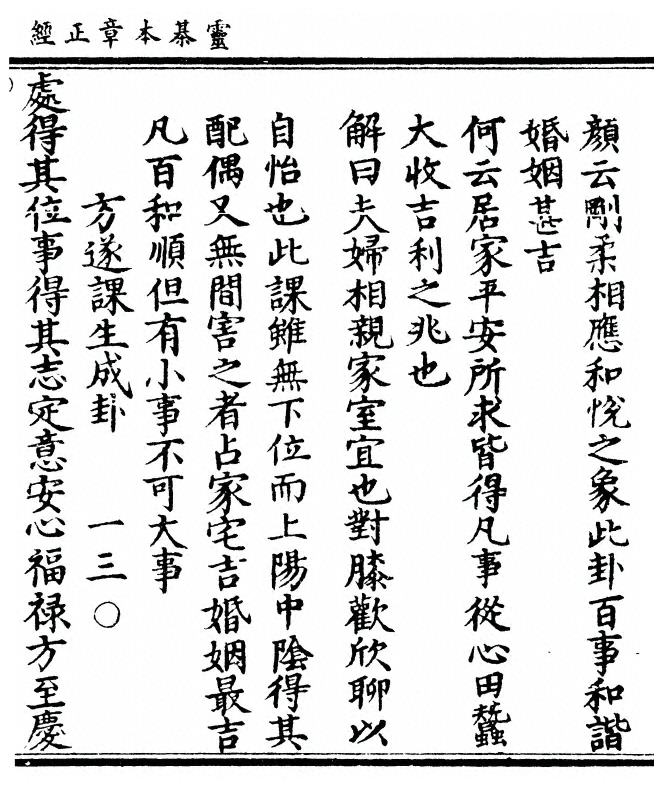 靈棊本章正經
顏云剛柔相應和悅之象此卦百事和諧
婚姻甚吉
何云居家平安所求皆得凡事從心田蠶
大收吉利之兆也
解曰夫婦相親家室宜也對膝歡欣聊以
自怡也此課雖無下位而上陽中陰得其
配偶又無間害之者占家宅吉婚姻最吉
凡百和順但有小事不可大事
方遂課生成卦　一三〇
處得其位事得其志定意安心福禄方至慶